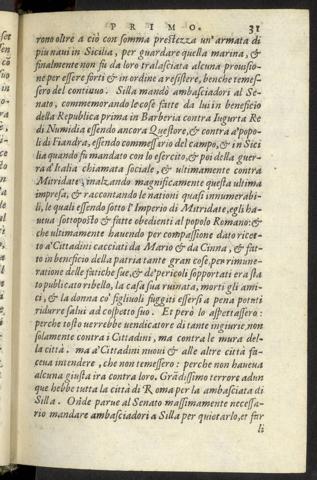 PRIMO. 31
rono oltre a ciò con somma prestezza un'armata di
piu naui in Sicilia, per guardare quella marina, &
finalmente non fu da loro tralasciata alcuna prouisio-
ne per essere forti & in ordine a resistere, benche temes-
sero del continuo. Silla mandò ambasciadori al Se-
nato, commemorando le cose fatte da lui in beneficio
della Republica prima in Barberia contra Iugurta Re
di Numidia essendo ancora Questore, & contra a' popo-
li di Fiandra, essendo commessario del campo, & in Sici
lia quando fu mandato con lo esercito, & poi della guer-
ra d'Italia chiamata sociale, & ultimamente contra
Mitridate, inalzando magnificamente questa ultima
impresa, & raccontando le nationi quasi innumerabi-
li, le quali essendo sotto l'Imperio di Mitridate, egli ha-
uua sottoposto & fatte obedienti al popolo Romano: &
che ultimamente hauendo per compassione dato ricet-
to a' Cittadini cacciati da Mario & da Cinna, & fat-
to in beneficio della patria tante gran cose, per rimune-
ratione delle fatiche sue, & de' pericoli sopportati era sta
to publicato ribello, la casa sua ruinata, morti gli ami-
ci, & la donna co' figliuoli fuggiti essersi a pena potuti
ridurre salui al cospetto suo. Et però lo aspettassero:
perche tosto uerrebbe uendicatore di tante ingiurie, non
solamente contra i Cittadini, ma contra le mura del-
la città. ma a' Cittadini nuoui & alle altre città fa-
ceua intendere, che non temessero: perche non haueua
alcuna giusta ira contra loro. Grādissimo terrore adun
que hebbe tutta la città di Roma per la ambasciata di
Silla. Onde parue al Senato massimamente necessa-
rio mandare ambasciadori a Silla per quietarlo, et far
li